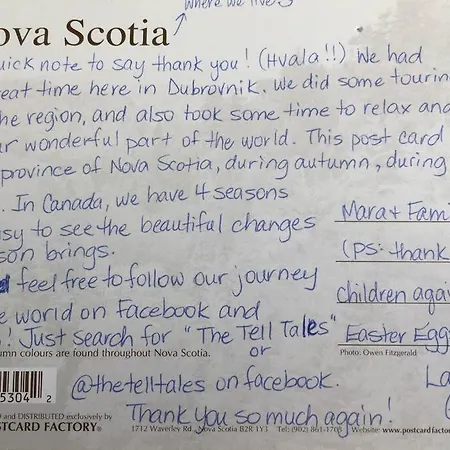 where we live :)
ova Scotia
uick note to say thank you! (Hvala!!) We had
eat time here in Dubrovnik. We did some touring
he region, and also took some time to relax and
ur wonderful part of the world. This post card
province of Nova Scotia, during autumn, during
. In Canada, we have 4 seasons
asy to see the beautiful changes
son brings.
feel free to follow our journey
e world on Facebook and
! Just search for "The Tell Tales"
or
@thetelltales on facebook.
Thank you so much again!
Mara + Fami
(PS: thank
children again
Easter Eggs
La
umn colours are found throughout Nova Scotia.
Photo: Owen Fitzgerald
5304 2
D and DISTRIBUTED exclusively by
OSTCARD FACTORY®
1712 Waverley Rd. Nova Scotia B2R 1Y3 Tel: (902) 861-1705 Website: www.postcardfactory